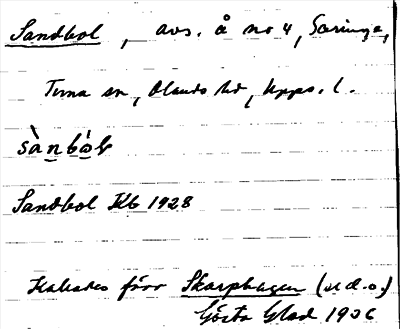 Sandbol, avs. å no 4, Saringe,
Tuna sn, Olands hd, Upps. l.
sànbò̀l
Sandbol Jkb 1928
Kallades förr Skarphagen (se d.o.)
Gösta Glad 1936